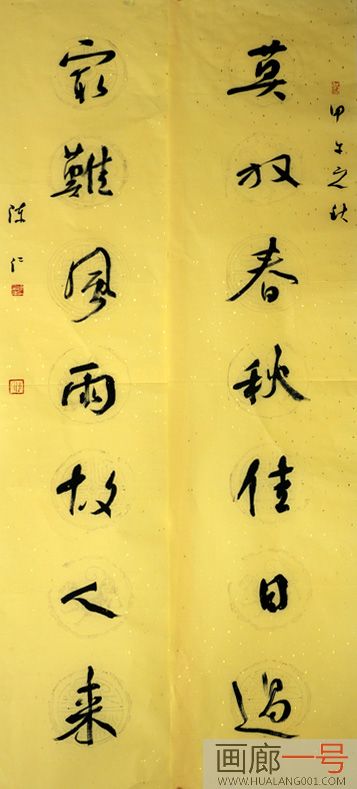 甲午之秋
莫放春秋佳日過
最難風雨故人来
陈仁
画廊一号
WWW.HUALANG001.COM